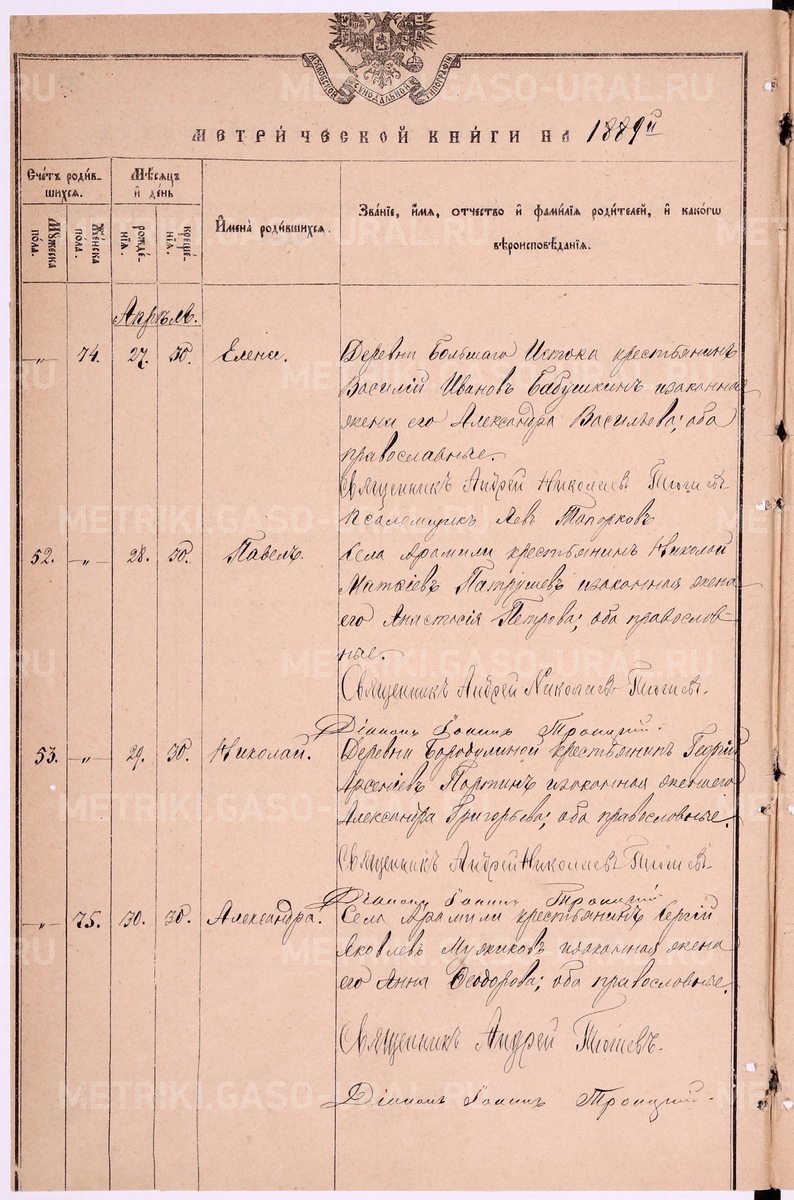 МОСКОВСКОЙ СѴНОДАЛЬНОЙ ТИПОГРАФІИ
МЕТРИЧЕСКОЙ КНИГИ НА 1889й
Счетъ родив-
шихся.
Мѣсяцъ
и день
Имена родившихся.
Званіе, имя, отчество и фамилія родителей, и какогѡ
вѣроисповѣданія.
Мужеска
пола.
Женска
пола.
рожде-
нія.
креще-
нія.
Апрѣль.
„ 74. 27. 30. Елена. Деревни Большаго Истока крестьянинъ
Василій Ивановъ Бабушкинъ изаконная
жена его Александра Васильева; оба
православные.
Священникъ Андрей Николаевъ
Псаломщикъ Левъ Топорковъ
52. „ 28. 30. Павелъ. Села Арамили крестьянинъ Николай
Матѳіевъ Патрушевъ изаконная жена
его Анастасія Петрова; оба православ-
ные.
Священникъ Андрей Николаевъ
Діаконъ Іоаннъ Троицкій.
53. „ 29. 30. Николай. Деревни Бородулиной крестьянинъ Георгій
Арсеніевъ изаконная жена его
Александра Григорьева; оба православные.
Священникъ Андрей Николаевъ
Діаконъ Іоаннъ Троицкій
„ 75. 30. 30. Александра. Села Арамили крестьянинъ Сергій
Яковлевъ Мужиковъ изаконная жена
его Анна Ѳеодорова; оба православные.
Священникъ Андрей
Діаконъ Іоаннъ Троицкій.
METRIKI.GASO-URAL.RU